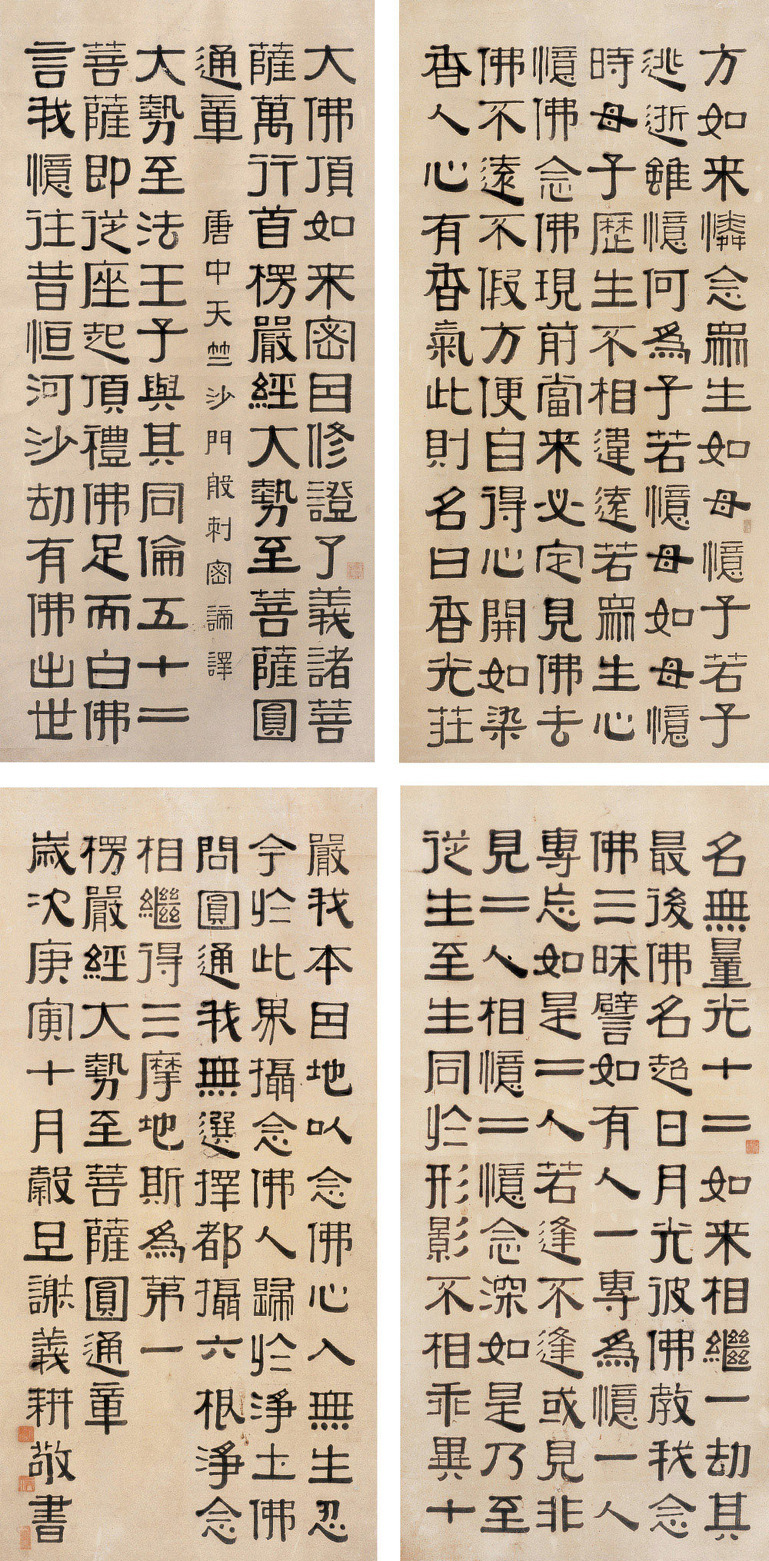 大佛頂如来密因修證了義諸菩
薩萬行首楞嚴經大勢至菩薩圓
通章
唐中天竺沙門般剌密諦譯
大勢至法王子與其同倫五十二
菩薩即從座起頂禮佛足而白佛
言我憶往昔恒河沙劫有佛出世
名無量光十二如来相繼一劫其
最後佛名超日月光彼佛教我念
佛三昧譬如有人一專為憶一人
專忘如是二人若逢不逢或見非
見二人相憶二憶念深如是乃至
從生至生同於形影不相乖異十
方如来憐念眾生如母憶子若子
逃逝雖憶何為子若憶母如母憶
時母子歷生不相違遠若眾生心
憶佛念佛現前當来必定見佛去
佛不遠不假方便自得心開如染
香人心有香氣此則名曰香光莊
嚴我本因地以念佛心入無生忍
今於此界攝念佛人歸於淨土佛
問圓通我無選擇都攝六根淨念
相繼得三摩地斯為第一
楞嚴經大勢至菩薩圓通章
歲次庚寅十月穀旦謝義耕敬書